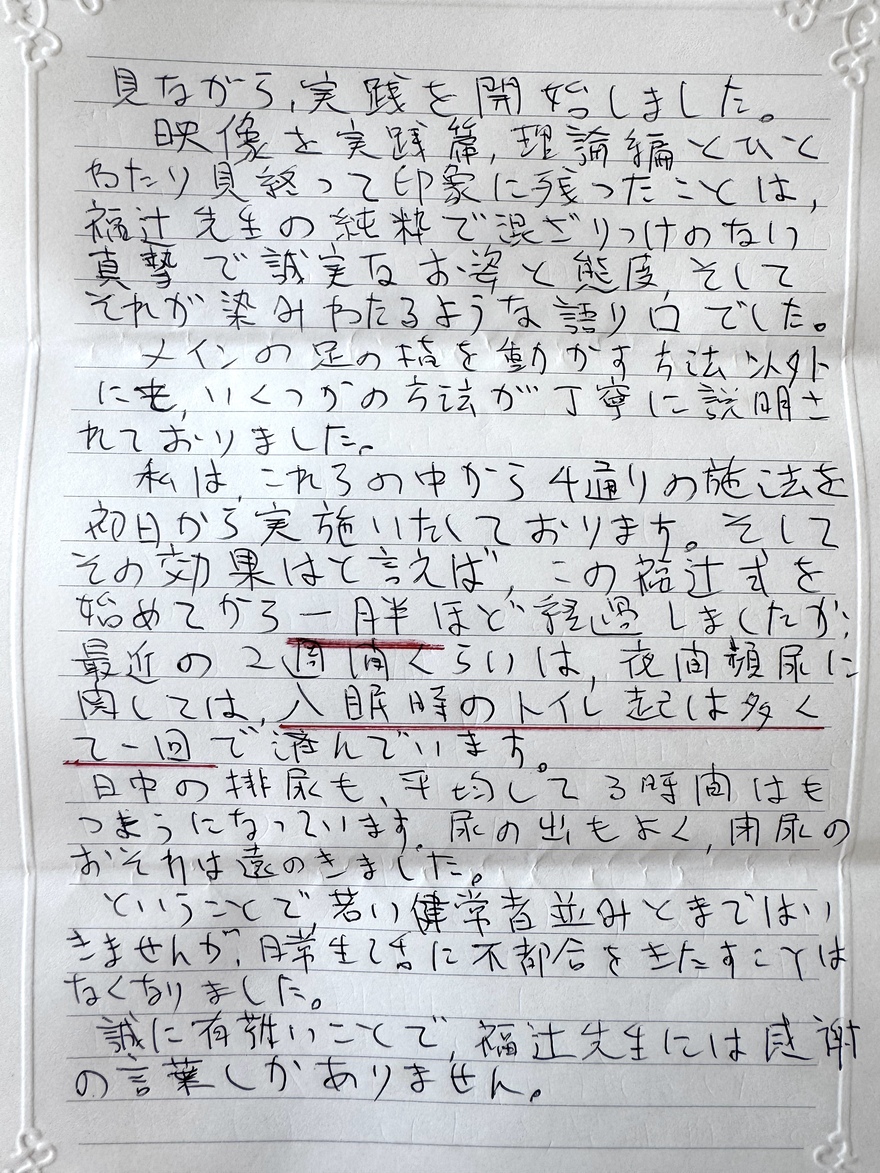 見ながら、実践を開始しました。
映像を実践篇,理論編とひと
わたり見終って印象に残ったことは,
福辻先生の純粋で混ざりっけのない
真摯で誠実なお姿と態度,そして
それが染みわたるような語り口でした。
メインの足の指を動かす方法以外
にも,いくつかの方法が丁寧に説明さ
れておりました。
私は,これらの中から4通りの施法を
初日から実施いたしております。そして
その効果はと言えば,この福辻式を
始めてから一月半ほど経過しましたが,
最近の2週間くらいは,夜間頻尿に
関しては,入眠時のトイレ起は多く
て一回で済んでいます。
日中の排尿も、平均して3時間はも
つようになっています。尿の出もよく,閉尿の
おそれは遠のきました。
ということで,若い健常者並みとまではい
きませんが,日常生活に不都合をきたすことは
なくなりました。
誠に有難いことで,福辻先生には感謝
の言葉しかありません。